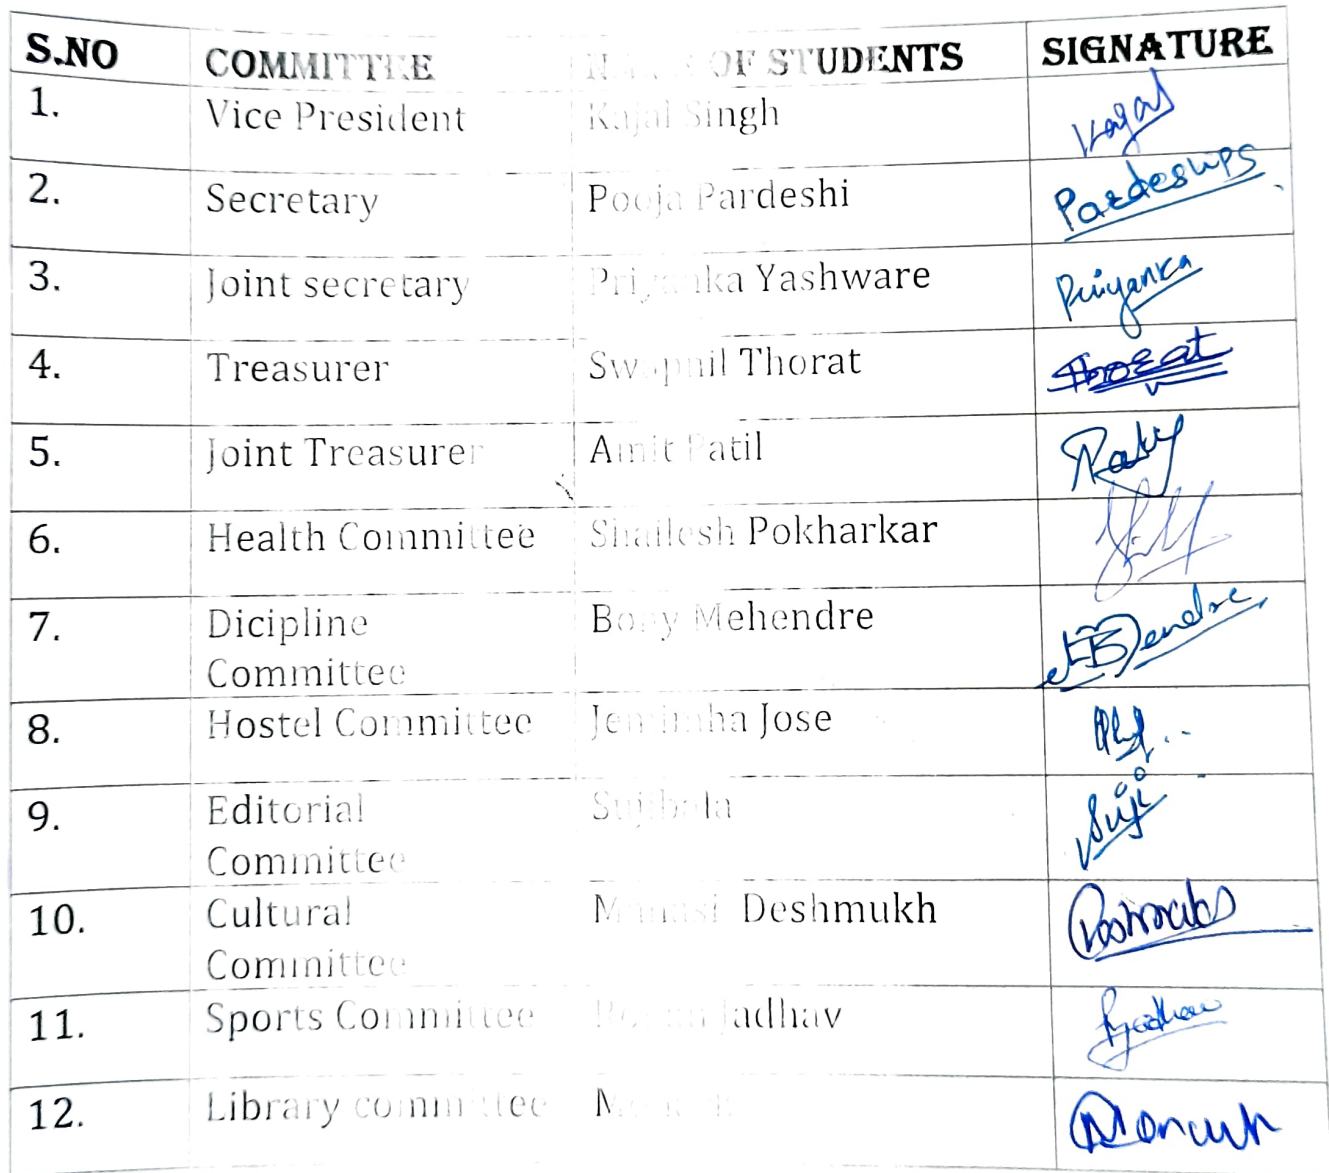 S.NO COMMITTEE NAME OF STUDENTS SIGNATURE
1. Vice President Kajal Singh Kajal
2. Secretary Pooja Pardeshi
3. Joint secretary Priyanka Yashware Priyanka
4. Treasurer Swapnil Thorat Thorat
5. Joint Treasurer Amit Patil
6. Health Committee Shailesh Pokharkar
7. Dicipline Mehendre
Committee
8. Hostel Committee Jemimha Jose
9. Editorial Sujibala Suji
Committee
10. Cultural Manasi Deshmukh
Committee
11. Sports Committee Jadhav
12. Library committee